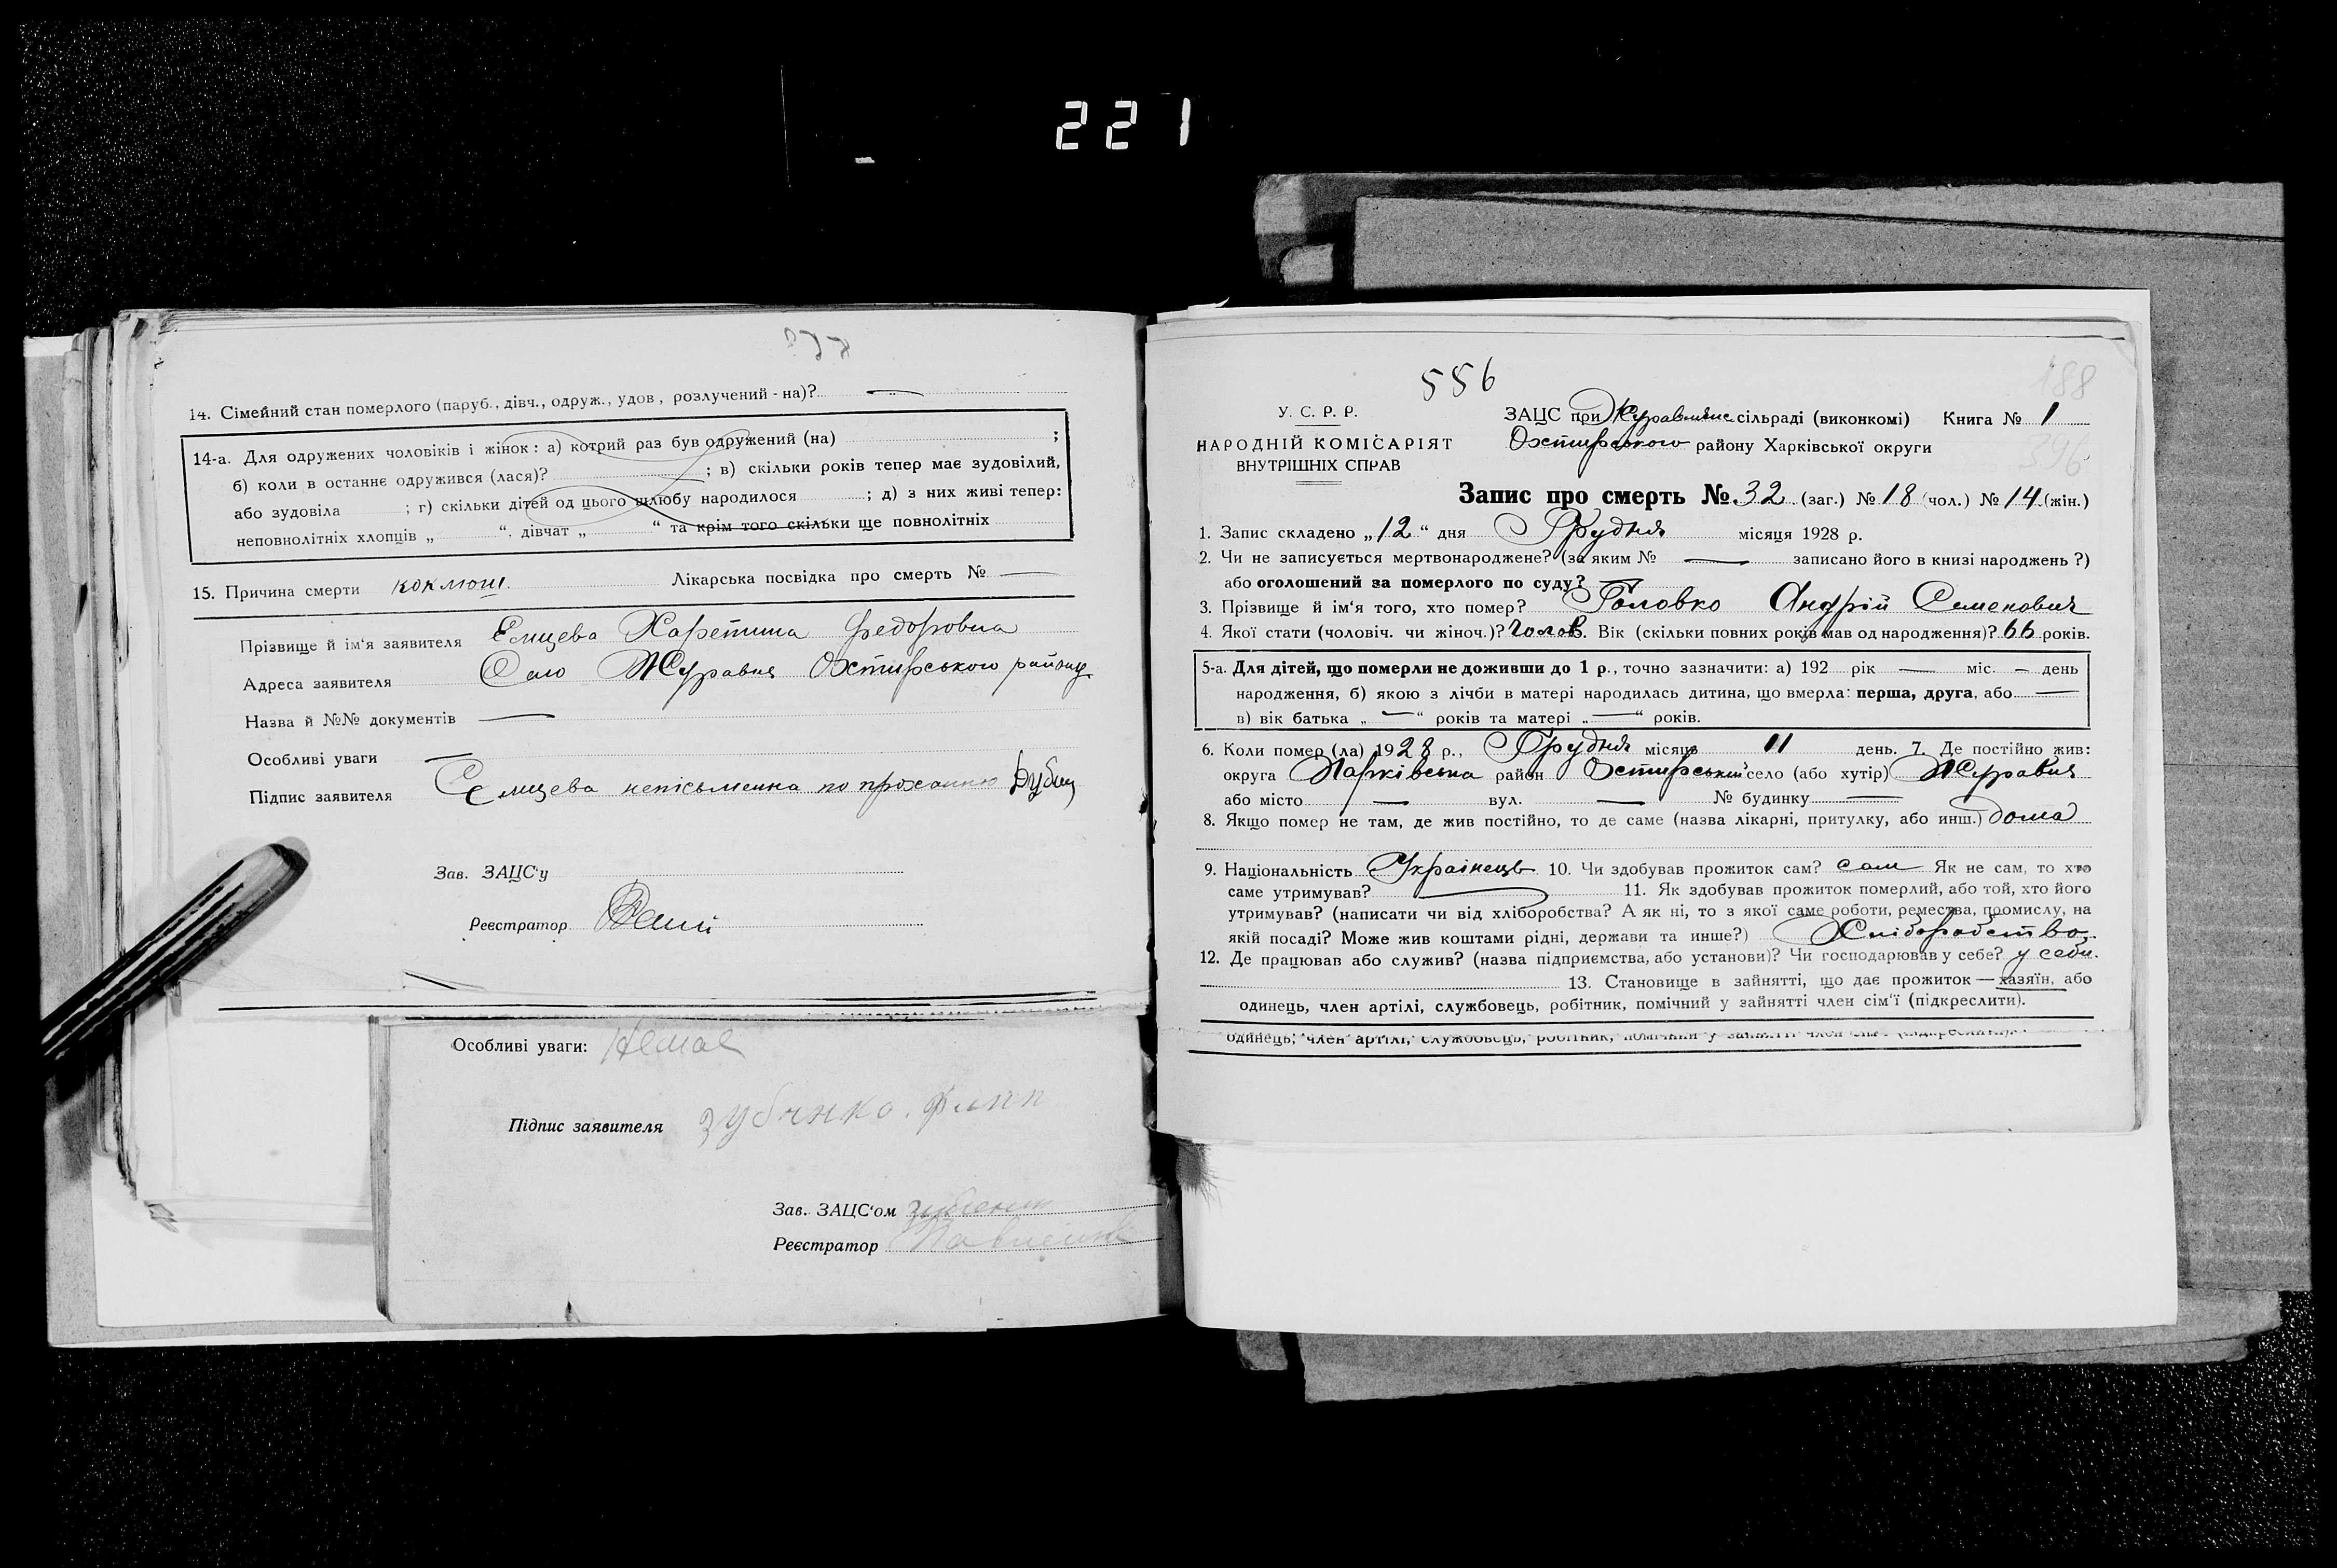 221
14. Сімейний стан померлого (паруб., дівч., одруж., удов., розлучений - на)? —
14-а. Для одружених чоловіків і жінок: а) котрий раз був одружений (на) ;
б) коли в останнє одружився (лася)? ; в) скільки років тепер має зудовілий,
або зудовіла ; г) скільки дітей од цього шлюбу народилося ; д) з них живі тепер:
неповнолітніх хлопців „ “, дівчат „ “ та крім того скільки ще повнолітніх
15. Причина смерти коклюш. Лікарська посвідка про смерть № —
Прізвище й ім'я заявителя Емцева Харетина Федоровна
Адреса заявителя Село Журавня Охтирського району
Назва й №№ документів —
Особливі уваги —
Підпис заявителя Емцева непісьменна по проханню
Зав. ЗАЦС'у
Реєстратор
Особливі уваги: Немає
Підпис заявителя
Зав. ЗАЦС'ом
Реєстратор
556
188
396
У. С. Р. Р.
НАРОДНІЙ КОМІСАРІЯТ
ВНУТРІШНІХ СПРАВ
ЗАЦС при сільраді (виконкомі) Книга № 1
Охтирського району Харківської округи
Запис про смерть № 32 (заг.) № 18 (чол.) № 14 (жін.)
1. Запис складено „12“ дня Грудня місяця 1928 р.
2. Чи не записується мертвонароджене? (за яким № — записано його в книзі народжень?)
або оголошений за померлого по суду? —
3. Прізвище й ім'я того, хто помер? Головко Андрій Семенович
4. Якої стати (чоловіч. чи жіноч.)? Чолов. Вік (скільки повних років мав од народження)? 66 років.
5-а. Для дітей, що померли не доживши до 1 р., точно зазначити: а) 192 рік — міс. — день
народження, б) якою з лічби в матері народилась дитина, що вмерла: перша, друга, або —
в) вік батька „ — “ років та матері „ — “ років.
6. Коли помер (ла) 1928 р., Грудня місяць 11 день. 7. Де постійно жив:
округа Харківська район Охтирський село (або хутір) Журавня
або місто — вул. — № будинку —
8. Якщо помер не там, де жив постійно, то де саме (назва лікарні, притулку, або инш.) дома
9. Національність Українець 10. Чи здобував прожиток сам? сам Як не сам, то хто
саме утримував? — 11. Як здобував прожиток померлий, або той, хто його
утримував? (написати чи від хліборобства? А як ні, то з якої саме роботи, ремества, промислу, на
якій посаді? Може жив коштами рідні, держави та инше?) Хліборобство.
12. Де працював або служив? (назва підприємства, або установи)? Чи господарював у себе? у себе.
13. Становище в зайнятті, що дає прожиток — хазяїн, або
одинець, член артілі, службовець, робітник, помічний у зайнятті член сім'ї (підкреслити).
одинець, член артілі, службовець, робітник, помічний у зайнятті член сім'ї (підкреслити).